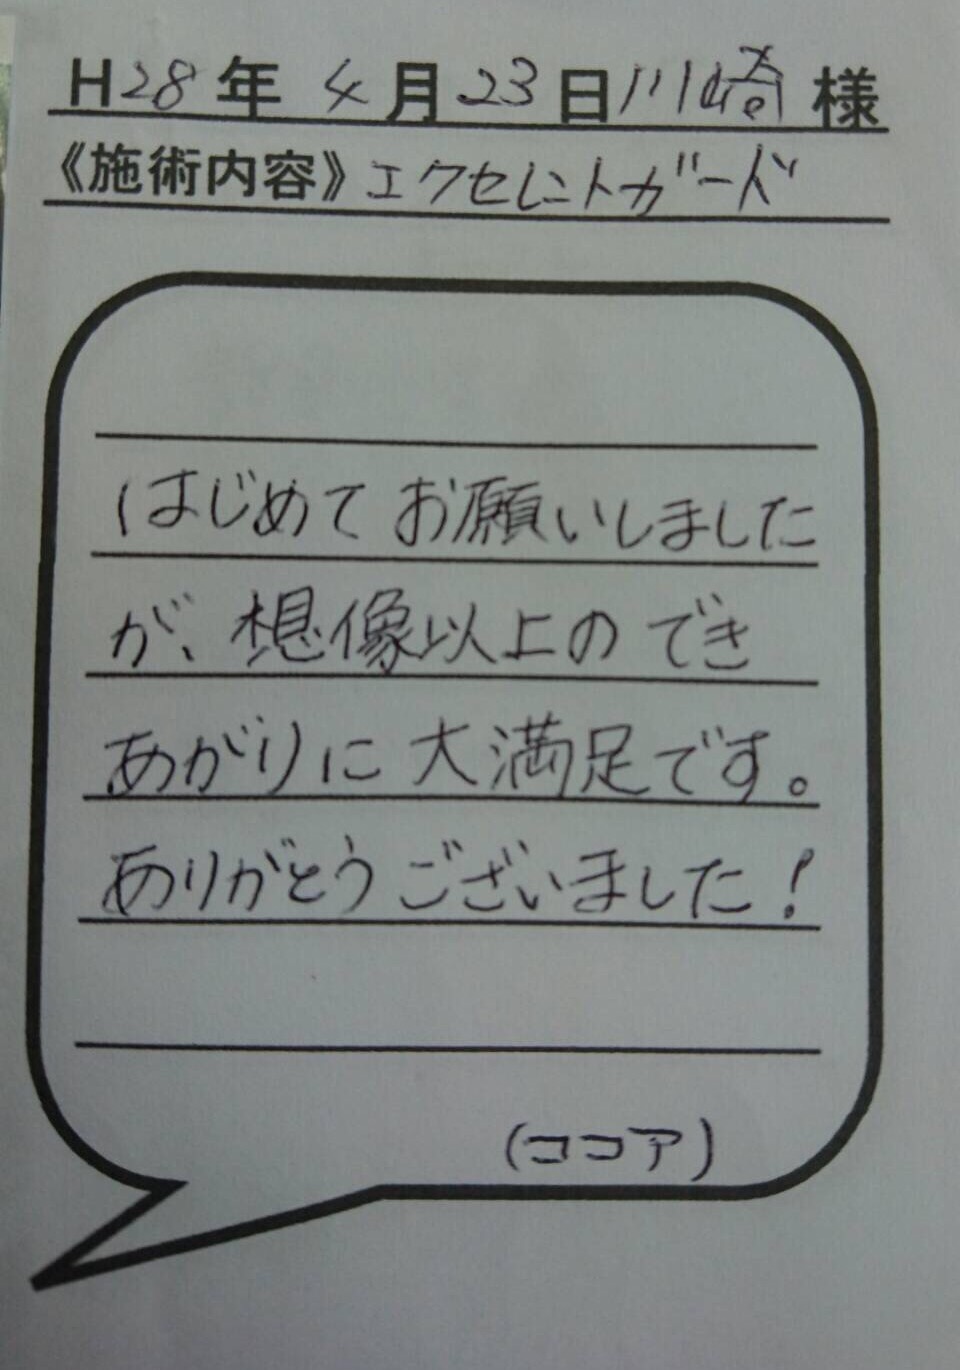 H28年 4月23日 川崎 様
《施術内容》エクセレントガード
はじめてお願いしました
が、想像以上のでき
あがりに大満足です。
ありがとうございました!
(ココア)